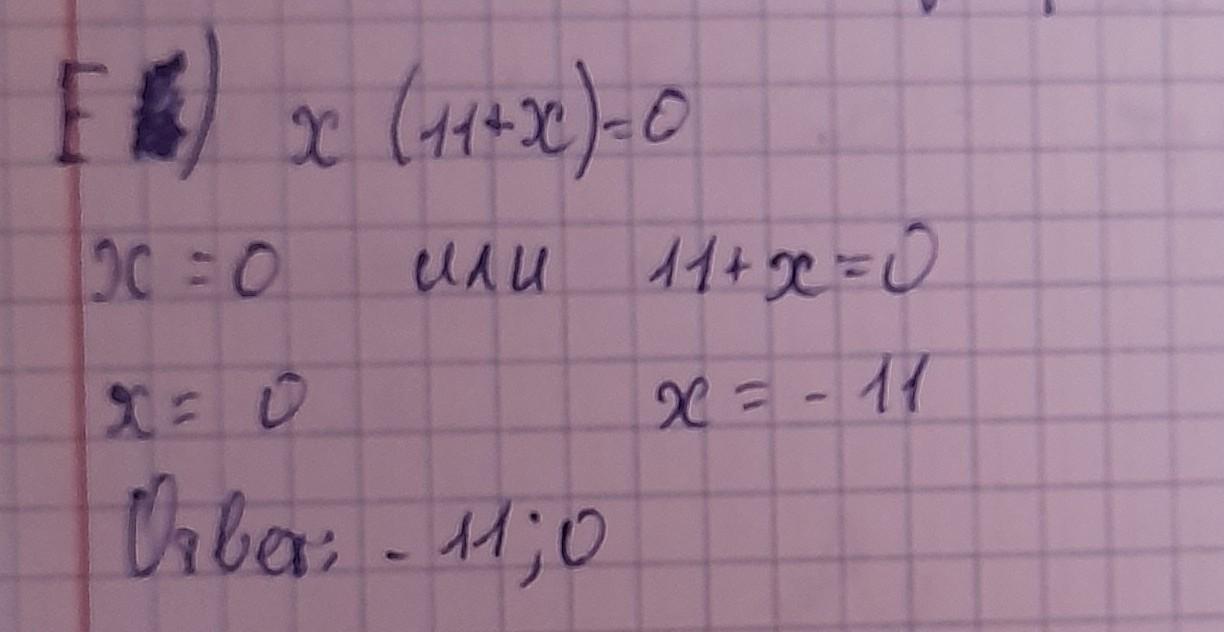 Г) x (11+x)=0
x=0 или 11+x=0
x= 0 x = - 11
Ответ: - 11; 0